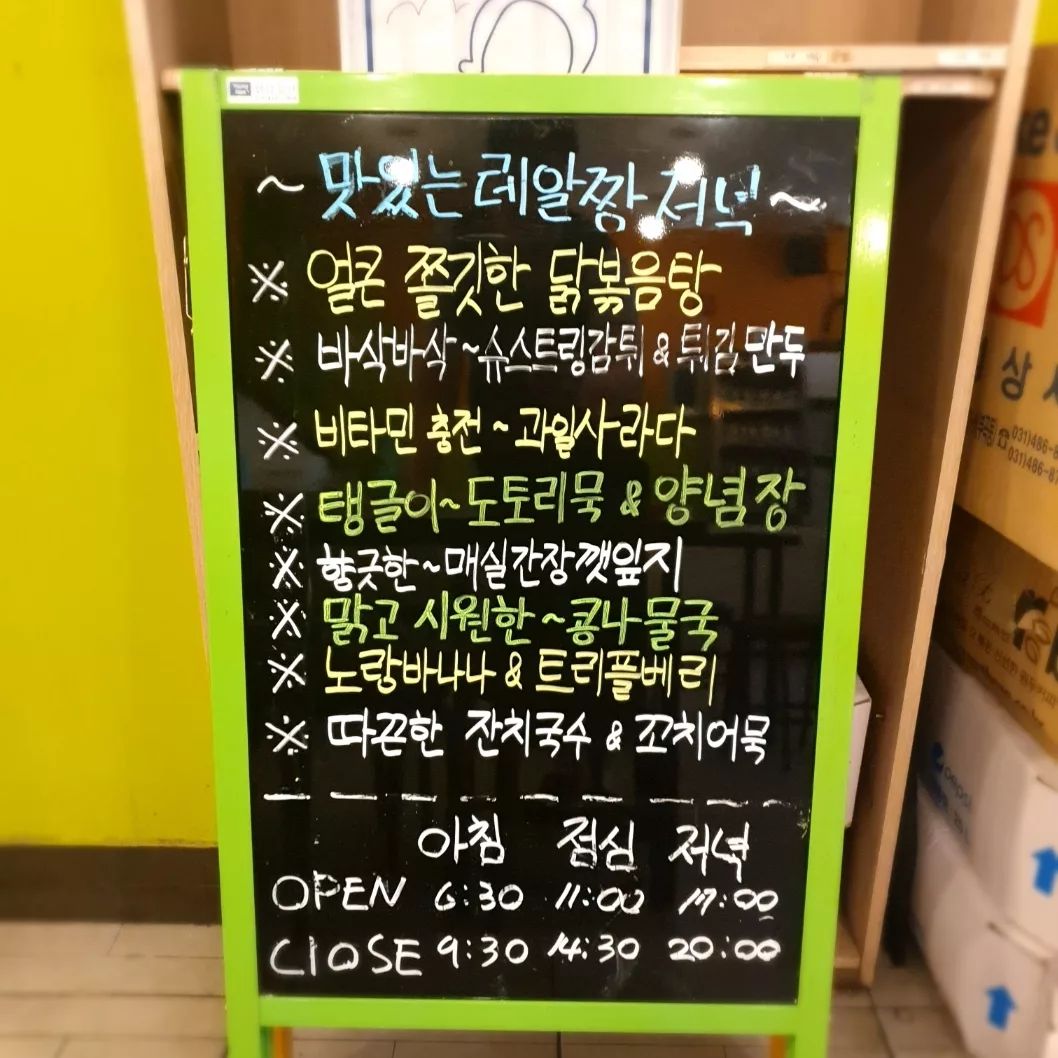 ~ 맛있는 레알짱 저녁 ~
※ 얼큰 쫄깃한 닭볶음탕
※ 바삭바삭~슈스트링감튀 & 튀김만두
※ 비타민 충전~과일사라다
※ 탱글이~도토리묵 & 양념장
※ 향긋한~매실간장깻잎지
※ 맑고 시원한~콩나물국
※ 노랑바나나 & 트리플베리
※ 따끈한 잔치국수 & 꼬치어묵
아침 점심 저녁
OPEN 6:30 11:00 17:00
ClOSE 9:30 14:30 20:00
상
031)486-8
031)486-8
pepsi